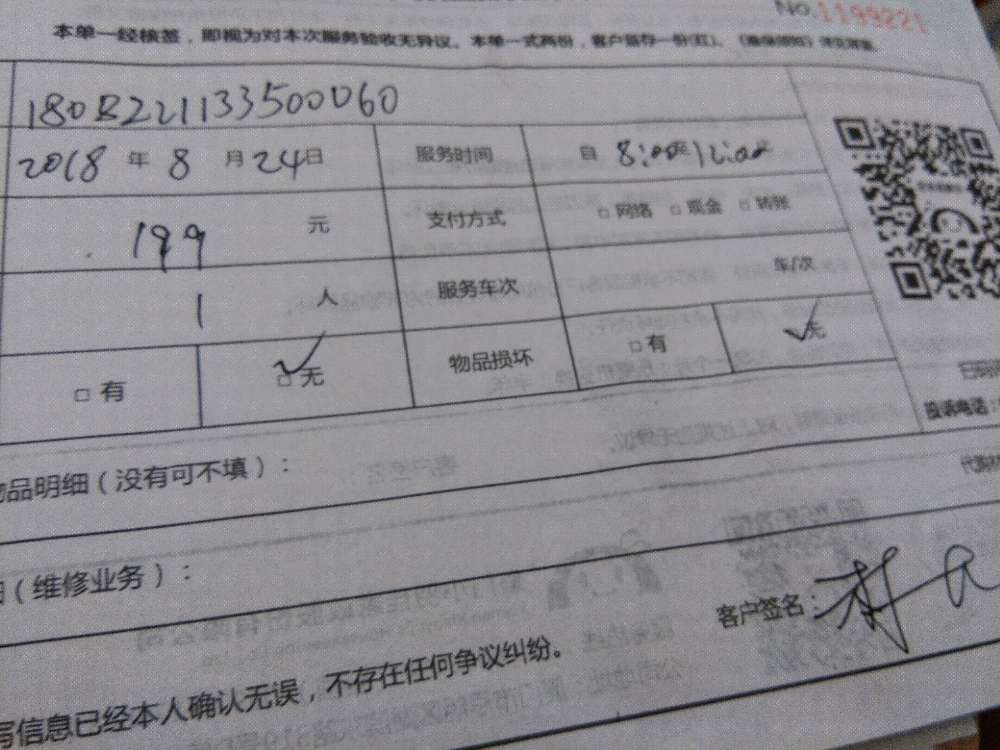 No.1199221
本单一经核签，即视为对本次服务验收无异议。本单一式两份，客户留存一份(红)。
1808221133500060
2018年8月24日 服务时间 自8:00至12:00
199元 支付方式 □网络 □现金 □转账
1人 服务车次 车/次
□有 □无 物品损坏 □有 无
投诉电话:
品明细(没有可不填):
(维修业务):
客户签名:林
写信息已经本人确认无误,不存在任何争议纠纷。